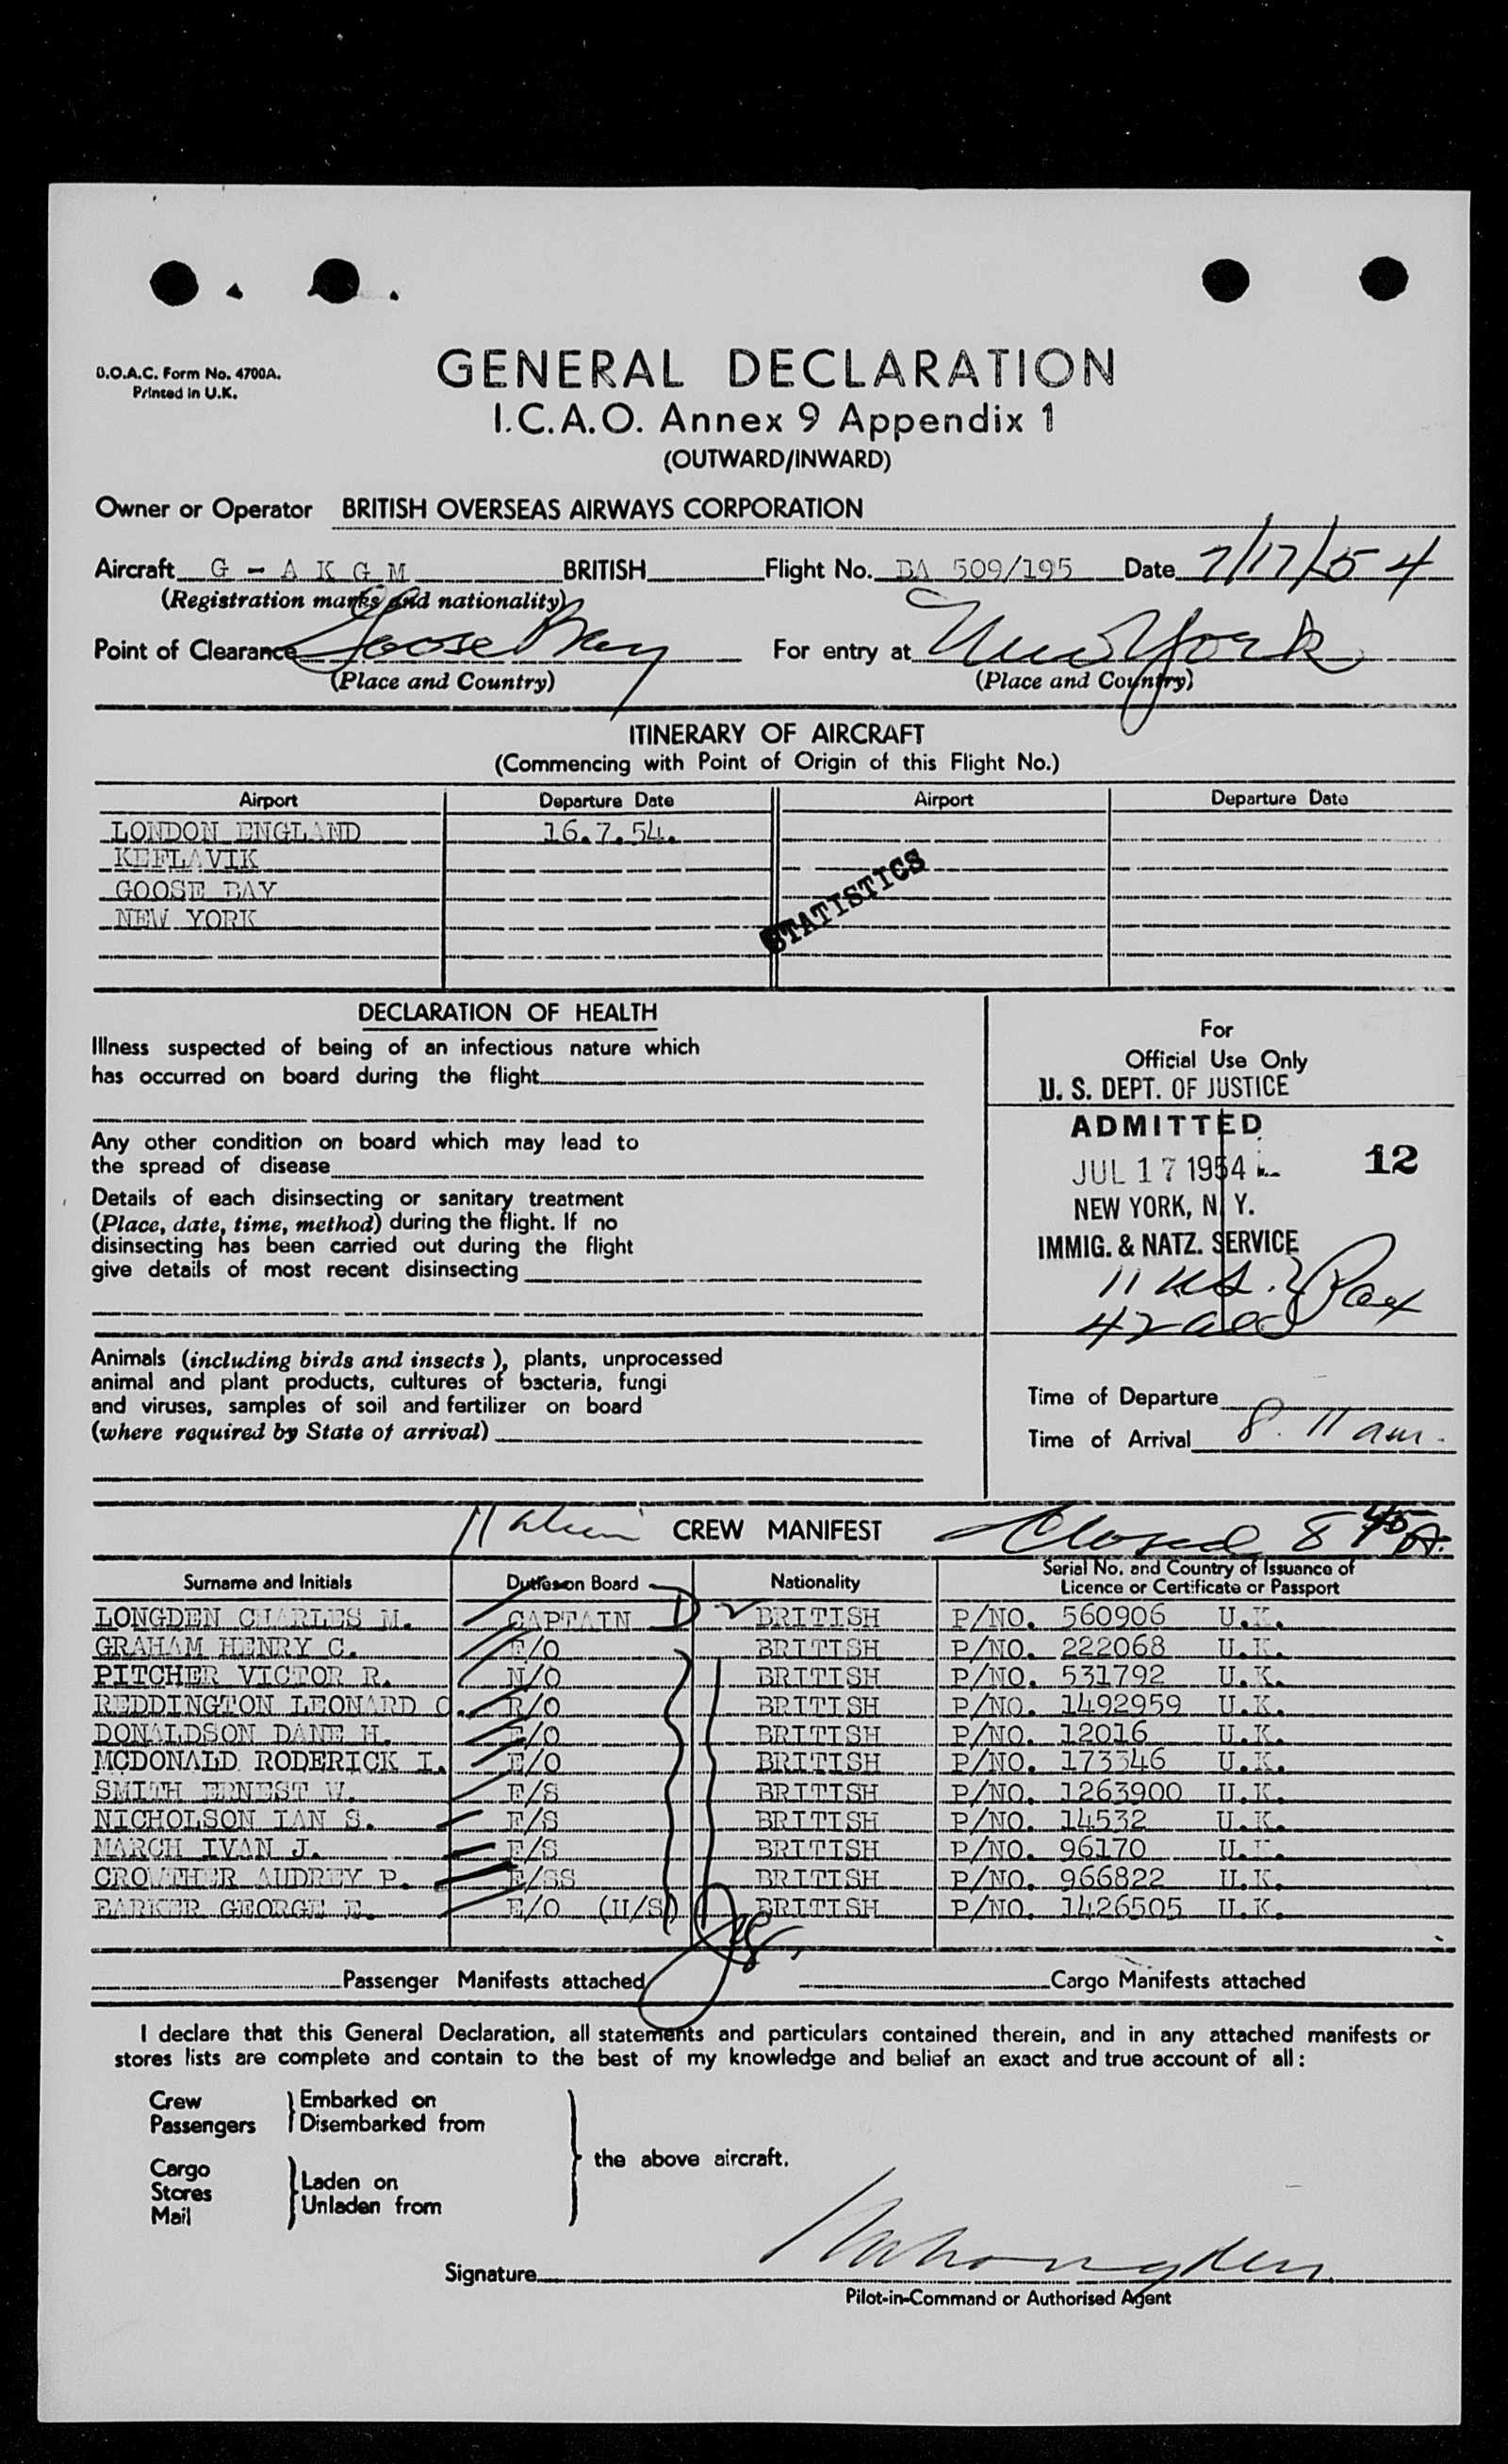 B.O.A.C. Form No. 4700A.
Printed in U.K.
GENERAL DECLARATION
I.C.A.O. Annex 9 Appendix 1
(OUTWARD/INWARD)
Owner or Operator BRITISH OVERSEAS AIRWAYS CORPORATION
Aircraft G - A K G M BRITISH Flight No. BA 509/195 Date 7/17/54
(Registration marks and nationality)
Point of Clearance Goose Bay For entry at New York
(Place and Country) (Place and Country)
ITINERARY OF AIRCRAFT
(Commencing with Point of Origin of this Flight No.)
Airport Departure Date Airport Departure Date
LONDON ENGLAND 16.7.54.
KEFLAVIK
GOOSE BAY
NEW YORK
STATISTICS
DECLARATION OF HEALTH
Illness suspected of being of an infectious nature which
has occurred on board during the flight
Any other condition on board which may lead to
the spread of disease
Details of each disinsecting or sanitary treatment
(Place, date, time, method) during the flight. If no
disinsecting has been carried out during the flight
give details of most recent disinsecting
Animals (including birds and insects), plants, unprocessed
animal and plant products, cultures of bacteria, fungi
and viruses, samples of soil and fertilizer on board
(where required by State of arrival)
For
Official Use Only
U. S. DEPT. OF JUSTICE
ADMITTED
JUL 17 1954 12
NEW YORK, N. Y.
IMMIG. & NATZ. SERVICE
11 US. Pax
42
Time of Departure
Time of Arrival 8.11 am.
11 CREW MANIFEST Closed 8 45 A.
Surname and Initials Duties on Board Nationality Serial No. and Country of Issuance of
Licence or Certificate or Passport
LONGDEN CHARLES M. CAPTAIN D BRITISH P/NO. 560906 U.K.
GRAHAM HENRY C. F/O BRITISH P/NO. 222068 U.K.
PITCHER VICTOR R. N/O BRITISH P/NO. 531792 U.K.
REDDINGTON LEONARD C. R/O BRITISH P/NO. 1492959 U.K.
DONALDSON DANE H. E/O BRITISH P/NO. 12016 U.K.
MCDONALD RODERICK I. E/O BRITISH P/NO. 173346 U.K.
SMITH ERNEST W. F/S BRITISH P/NO. 1263900 U.K.
NICHOLSON IAN S. F/S BRITISH P/NO. 14532 U.K.
MARCH IVAN J. F/S BRITISH P/NO. 96170 U.K.
CROWTHER AUDREY P. F/SS BRITISH P/NO. 966822 U.K.
BARKER GEORGE E. E/O (U/S) BRITISH P/NO. 1426505 U.K.
Passenger Manifests attached Cargo Manifests attached
I declare that this General Declaration, all statements and particulars contained therein, and in any attached manifests or
stores lists are complete and contain to the best of my knowledge and belief an exact and true account of all:
Crew Embarked on
Passengers Disembarked from
the above aircraft.
Cargo
Stores Laden on
Mail Unladen from
Signature
Pilot-in-Command or Authorised Agent